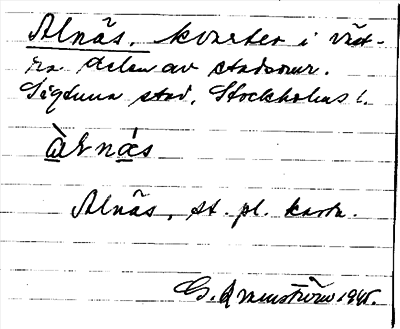 Alnäs, kvarter i väst-
ra delen av stadsomr.
Sigtuna stad, Stockholms l.
àlnás
Alnäs, st. pl. karta.
G. Armenström 1945.